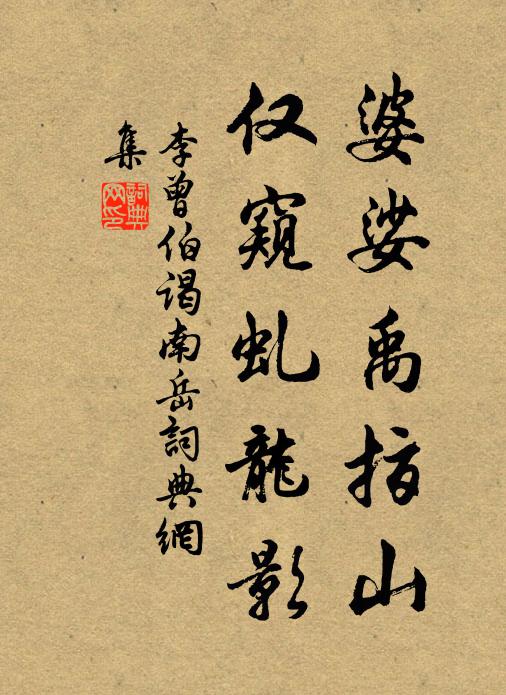 婆娑禹指山
仅窥虬龍影
李曾伯谒南岳詞典網
集
詞典
网印